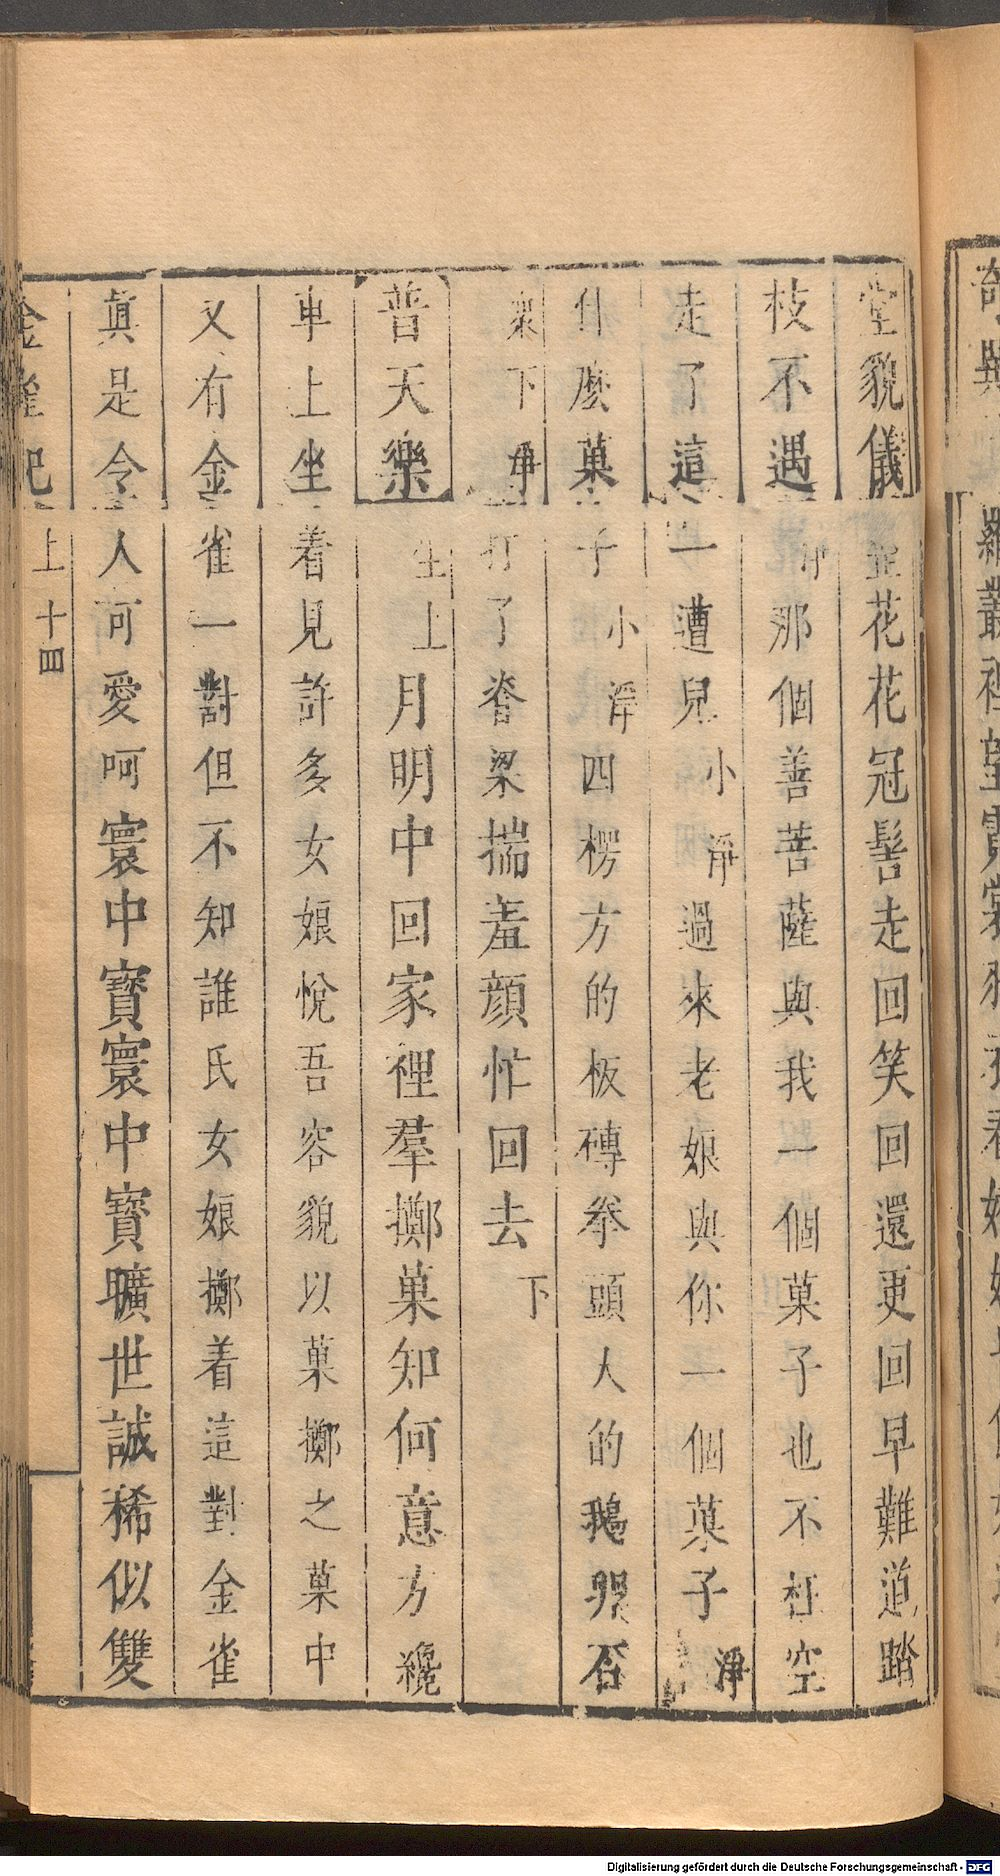 堂貌儀並花花冠髻走回笑回還更回早難道踏
枝不遇丑那個善菩薩與我一個菓子也不枉空
走了這一遭兒小淨過來老娘與你一個菓子淨
什麼菓子小淨四楞方的板磚拳頭大的鵝卵石
衆下淨打了脊梁揣羞顔忙回去下
普天樂生上月明中回家裡羣擲菓知何意方纔
車上坐着見許多女娘悅吾容貌以菓擲之菓中
又有金雀一對但不知誰氏女娘擲着這對金雀
眞是令人可愛呵寰中寶寰中寶曠世誠稀似雙
金雀記 上 十四
Digitalisierung gefördert durch die Deutsche Forschungsgemeinschaft - DFG